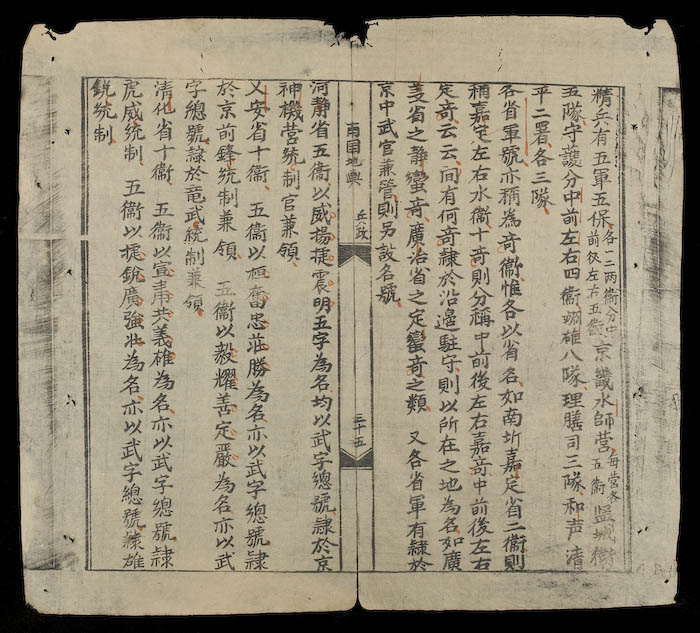 精兵有五軍五保各一二兩衞分中前後左右五衞京畿水師營每營各五衞監城衞
五隊守護分中前左右四衞翊雄八隊理膳司三隊和声清
平二署各三隊
各省軍號亦稱為奇衞惟各以省名如南圻嘉定省二衞則
稱嘉定左右水衞十奇則分稱中前後左右嘉奇中前後左右
定奇云云間有何奇隸於沿邊駐守則以所在之地為名如廣
省之靜蠻奇廣治省之定蠻奇之類 又各省軍有隸於
京中武官兼管則另設名號
南国地輿 兵政 三十五
河靜省五衞以威揚捷震明五字為名均以武字總號隸於京
神機营統制官兼領
乂安省十衞 五衞以桓奮忠莊勝為名亦以武字總號隸
於京前鋒統制兼領 五衞以毅耀善定嚴為名亦以武
字總號隸於竜武統制兼領
清化省十衞 五衞以宣肅共義雄為名亦以武字總號隸
虎威統制 五衞以捷銳廣強壯為名亦以武字總號隸雄
銳統制